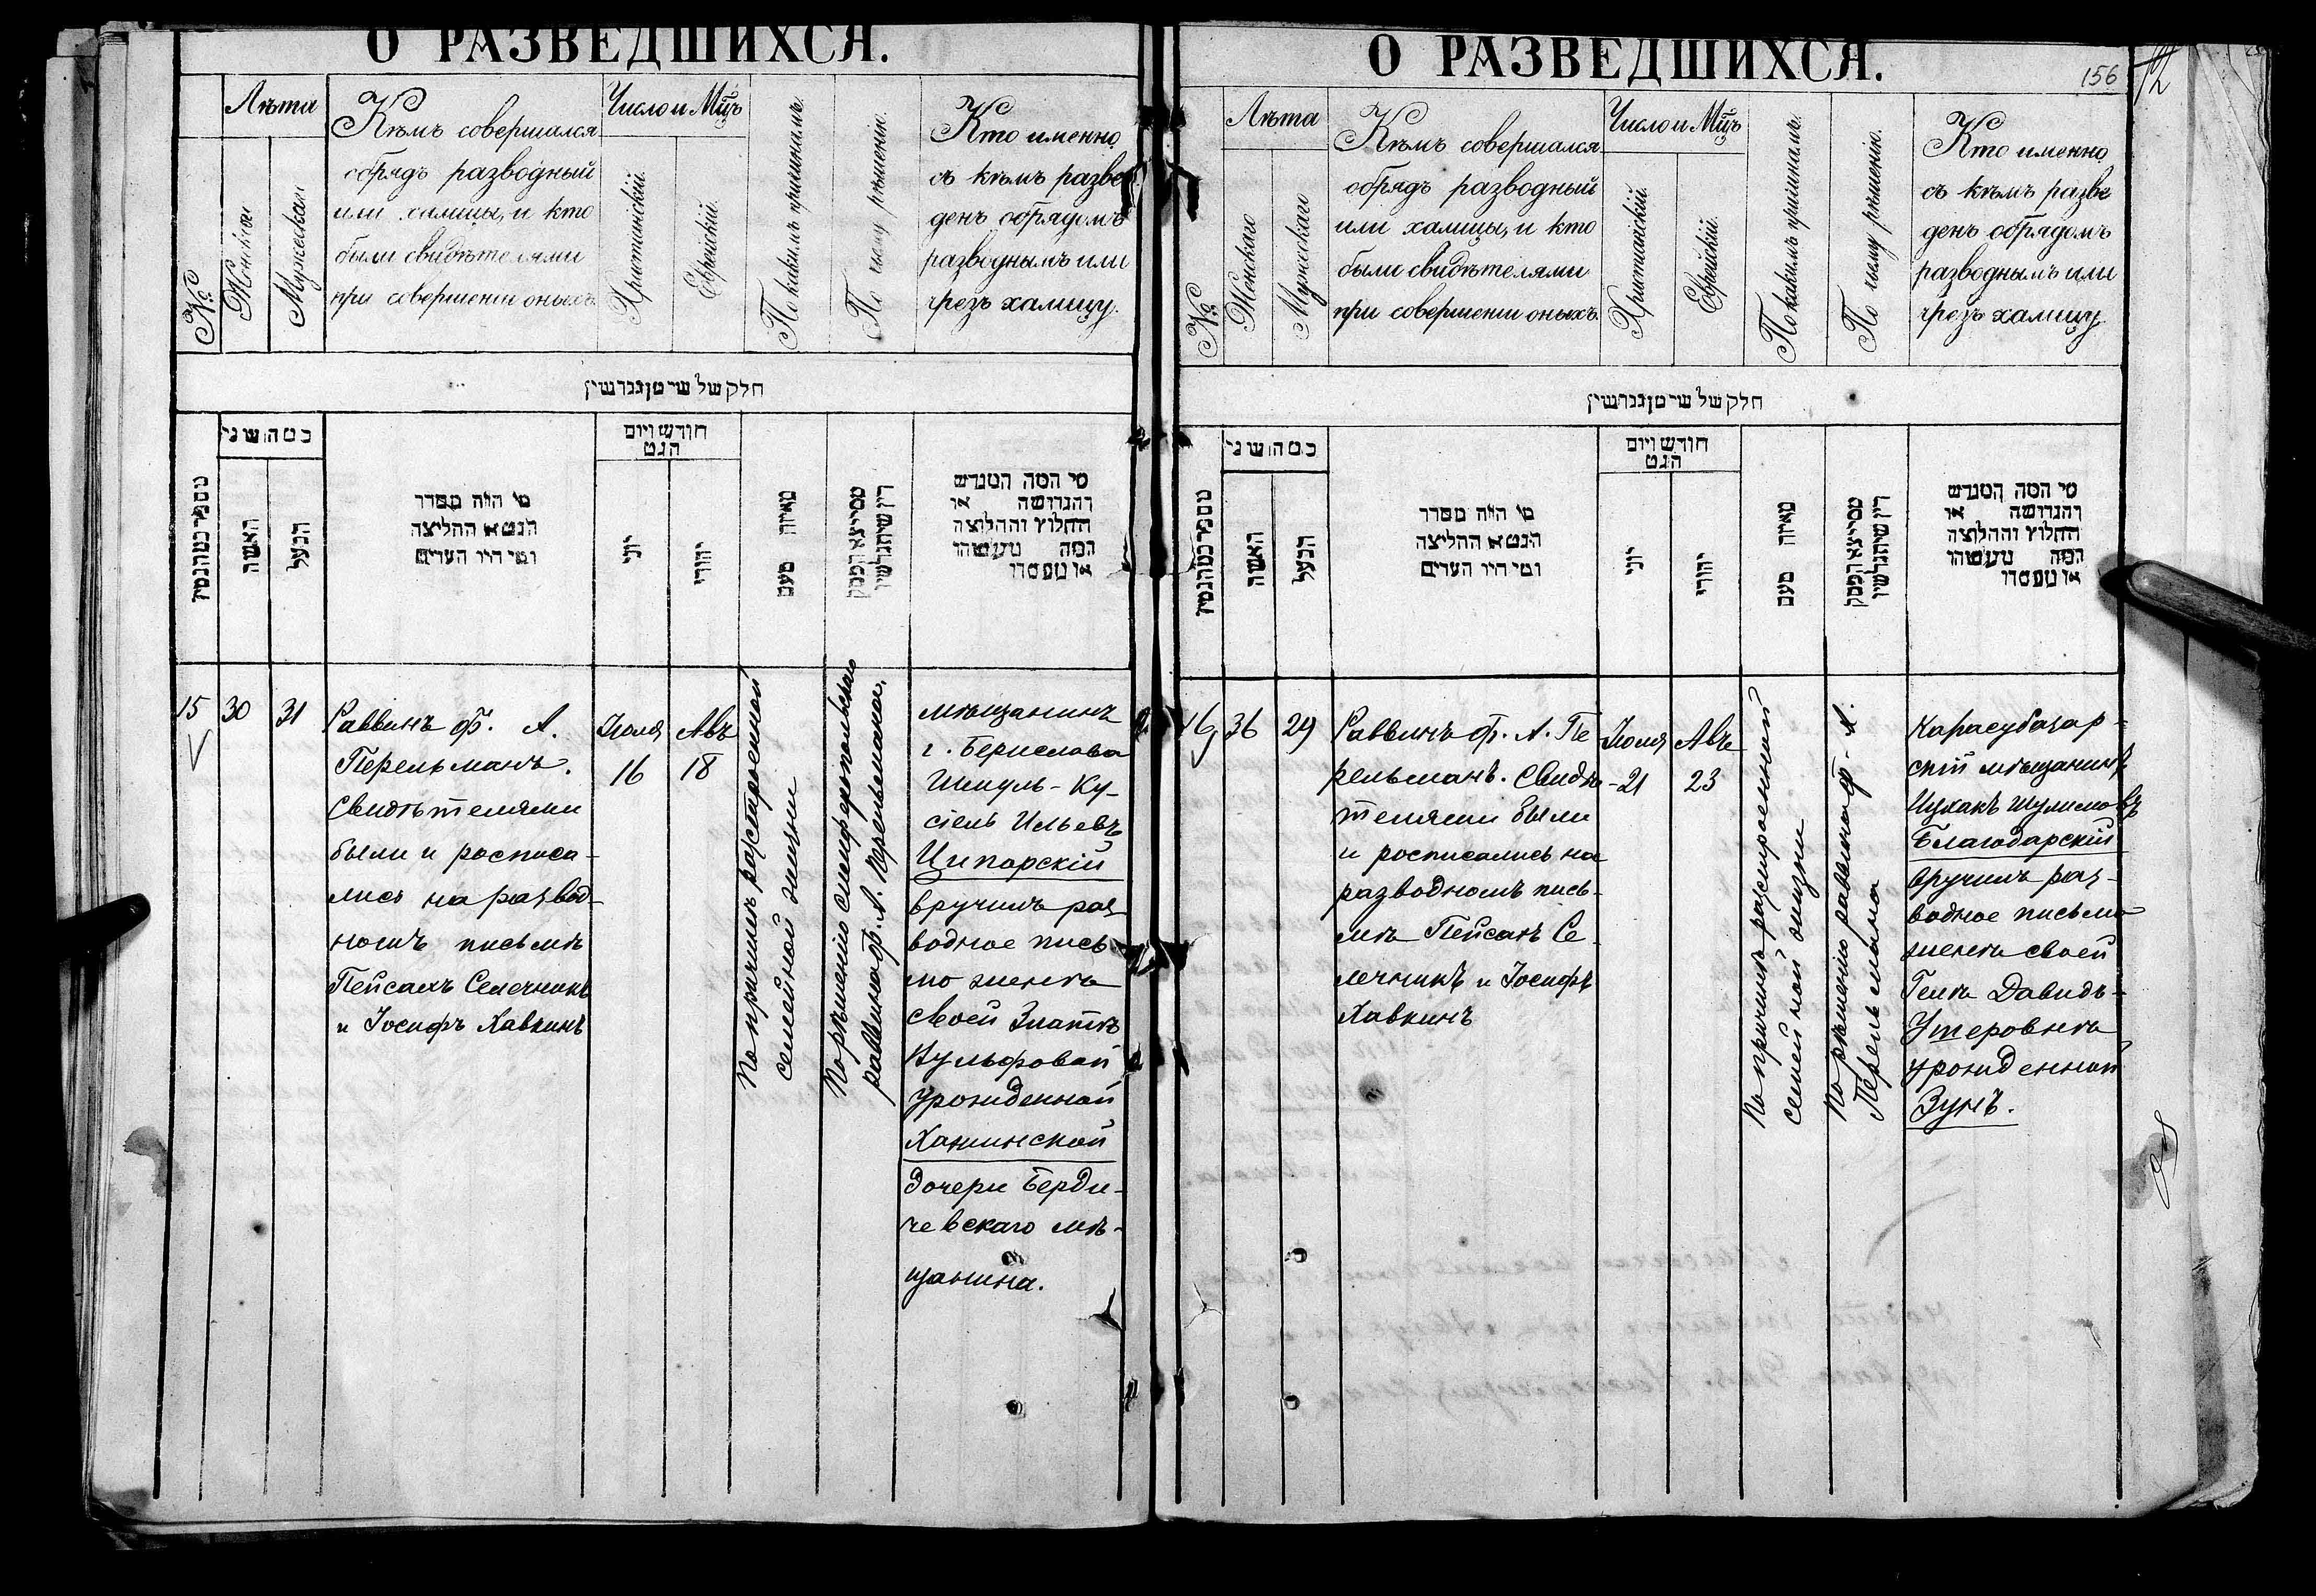 О РАЗВЕДШИХСЯ.
Лѣта
Числои Мц̃ъ
№
Женскаго
Мужескаго
Кѣмъ совершался
обрядъ разводный
или халицы, и кто
были свидѣтелями
при совершеніи оныхъ.
Христіанскій.
Еврейскій.
По какимъ причинамъ.
По чьему рѣшенію.
Кто именно
съ кѣмъ разве
денъ обрядомъ
разводнымъ или
чрезъ халицу.
חלק של שיטן גגרשין
חודש ויום
הגט
האשה
הבעל
מי היה מסדר
הגט או החליצה
ומי היו העדים
יוני
יהודי
מאיזה טעם
15
30
31
Раввинъ Ф. А.
Перельманъ.
Свидѣтелями
были и росписа-
лись на развод-
номъ письмѣ
Пейсахъ Селечникъ
и Іосифъ Хавкинъ
Іюля
16
Авъ
18
По причинѣ разстроенной
семейной жизни
По рѣшенію Симферопольскаго
раввина Ф. А. Перельмана.
мѣщанинъ
г. Берислава
Шмуль-Ку-
сіель Ильевъ
Ципарскій
вручилъ раз
водное пись
мо женѣ
своей Златѣ
Вульфовой
урожденной
Хажинской
дочери Берди-
чевскаго мѣ-
щанина.
О РАЗВЕДШИХСЯ.
156
12
Лѣта
Числои Мц̃ъ
№
Женскаго
Мужескаго
Кѣмъ совершался
обрядъ разводный
или халицы, и кто
были свидѣтелями
при совершеніи оныхъ.
Христіанскій.
Еврейскій.
По какимъ причинамъ.
По чьему рѣшенію.
Кто именно
съ кѣмъ разве
денъ обрядомъ
разводнымъ или
чрезъ халицу
חלק של שיטן גגרשין
חודש ויום
הגט
האשה
הבעל
מי היה מסדר
הגט או החליצה
ומי היו העדים
יוני
יהודי
מאיזה טעם
16
36
29
Раввинъ Ф. А. Пе
рельманъ. Свидѣ-
телями были
и росписались на
разводномъ пись-
мѣ Пейсахъ Се
лечникъ и Іосифъ
Хавкинъ
Іюля
21
Авъ
23
По причинѣ разстроенной
семейной жизни
По рѣшенію раввина Ф. А.
Перельмана
Карасубазар-
скій мѣщанинъ
Ицхакъ Шулимовъ
Благодарскій
вручилъ раз-
водное письмо
женѣ своей
Гелѣ Давидъ-
Утеровнѣ
урожденной
Зунъ.